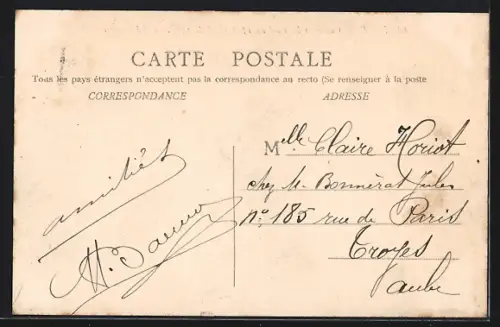 CARTE POSTALE
Tous les pays étrangers n'acceptent pas la correspondance au recto (Se renseigner à la poste
CORRESPONDANCE
ADRESSE
amitiés
Melle Claire Horiot
chez M. Bonnérat Jules
n° 185 rue de Paris
Troyes
Aube